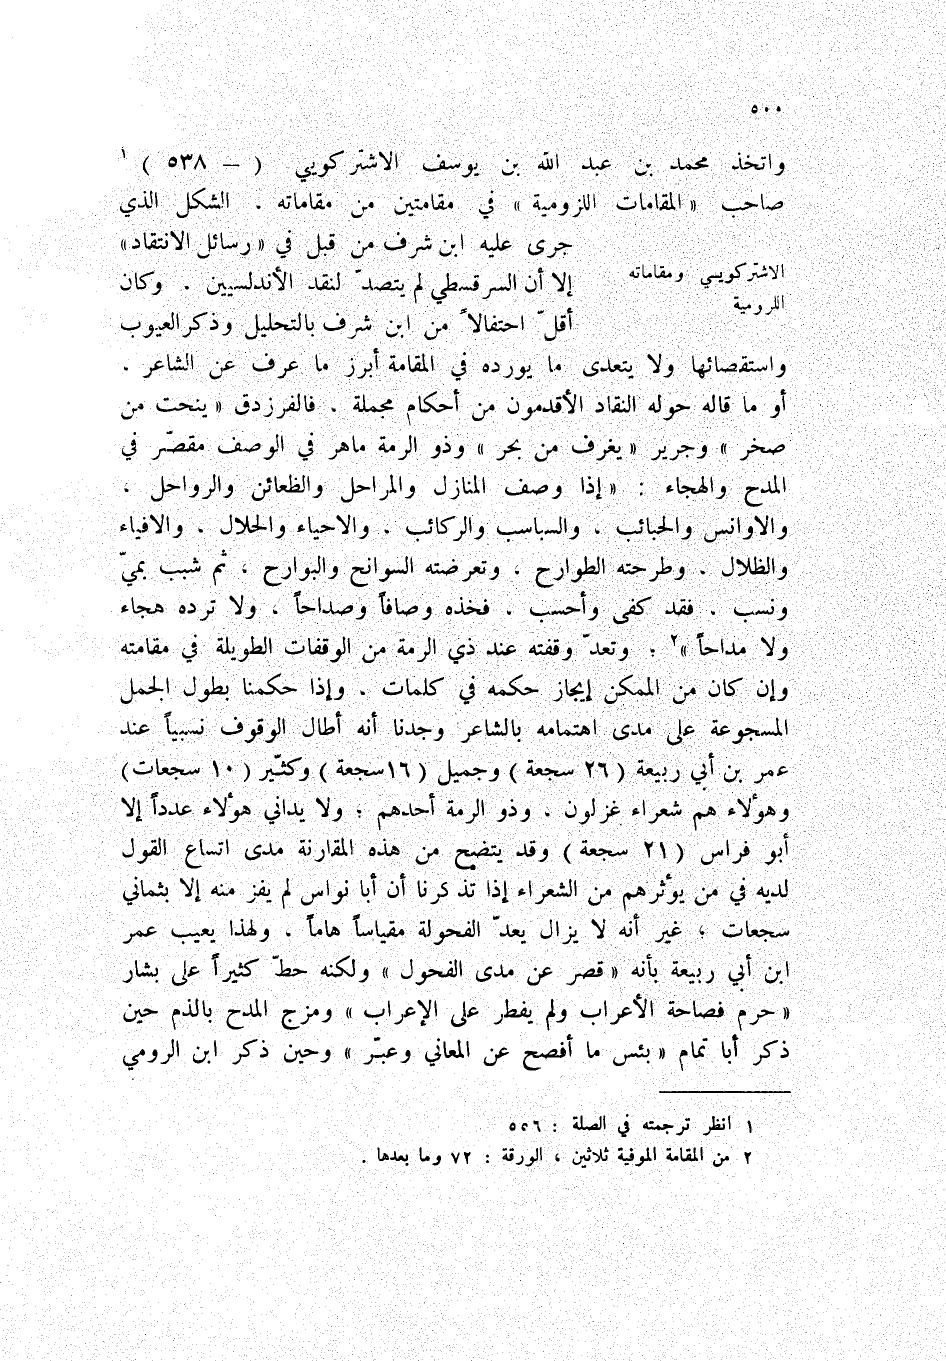 ٥٠٠
واتخذ محمد بن عبد الله بن يوسف الاشتركويي ( – ٥٣٨ ) ١
صاحب « المقامات اللزومية » في مقامتين من مقاماته ، الشكل الذي
جرى عليه ابن شرف من قبل في « رسائل الانتقاد »
الاشتركويـي ومقاماته
إلا أن السرقسطي لم يتصدّ لنقد الأندلسيين ، وكان
اللزومية
أقلّ احتفالاً من ابن شرف بالتحليل وذكر العيوب
واستقصائها ولا يتعدى ما يورده في المقامة أبرز ما عرف عن الشاعر ،
أو ما قاله حوله النقاد الأقدمون من أحكام مجملة ، فالفرزدق « ينحت من
صخر » وجرير « يغرف من بحر » وذو الرمة ماهر في الوصف مقصّر في
المدح والهجاء : « إذا وصف المنازل والمراحل والظعائن والرواحل ،
والاوانس والحبائب ، والسباسب والركائب ، والاحياء والحلال ، والافياء
والظلال ، وطرحته الطوارح ، وتعرضته السوانح والبوارح ، ثم شبب بميّ
ونسب ، فقد كفى وأحسب ، فخذه وصافاً وصداحاً ، ولا ترده هجاء
ولا مداحاً »٢ ؛ وتعدّ وقفته عند ذي الرمة من الوقفات الطويلة في مقامته
وإن كان من الممكن إيجاز حكمه في كلمات ، وإذا حكمنا بطول الجمل
المسجوعة على مدى اهتمامه بالشاعر وجدنا أنه أطال الوقوف نسبياً عند
عمر بن أبي ربيعة ( ٢٦ سجعة ) وجميل ( ١٦ سجعة ) وكثيّر ( ١٠ سجعات )
وهؤلاء هم شعراء غزلون ، وذو الرمة أحدهم ؛ ولا يداني هؤلاء عدداً إلا
أبو فراس ( ٢١ سجعة ) وقد يتضح من هذه المقارنة مدى اتساع القول
لديه في من يؤثرهم من الشعراء إذا تذكرنا أن أبا نواس لم يفز منه إلا بثماني
سجعات ؛ غير أنه لا يزال يعدّ الفحولة مقياساً هاماً ، ولهذا يعيب عمر
ابن أبي ربيعة بأنه « قصر عن مدى الفحول » ولكنه حطّ كثيراً على بشار
« حرم فصاحة الأعراب ولم يفطر على الإعراب » ومزج المدح بالذم حين
ذكر أبا تمام « بئس ما أفصح عن المعاني وعبّر » وحين ذكر ابن الرومي
١ انظر ترجمته في الصلة : ٥٥٦
٢ من المقامة الموفية ثلاثين ، الورقة : ٧٢ وما بعدها .